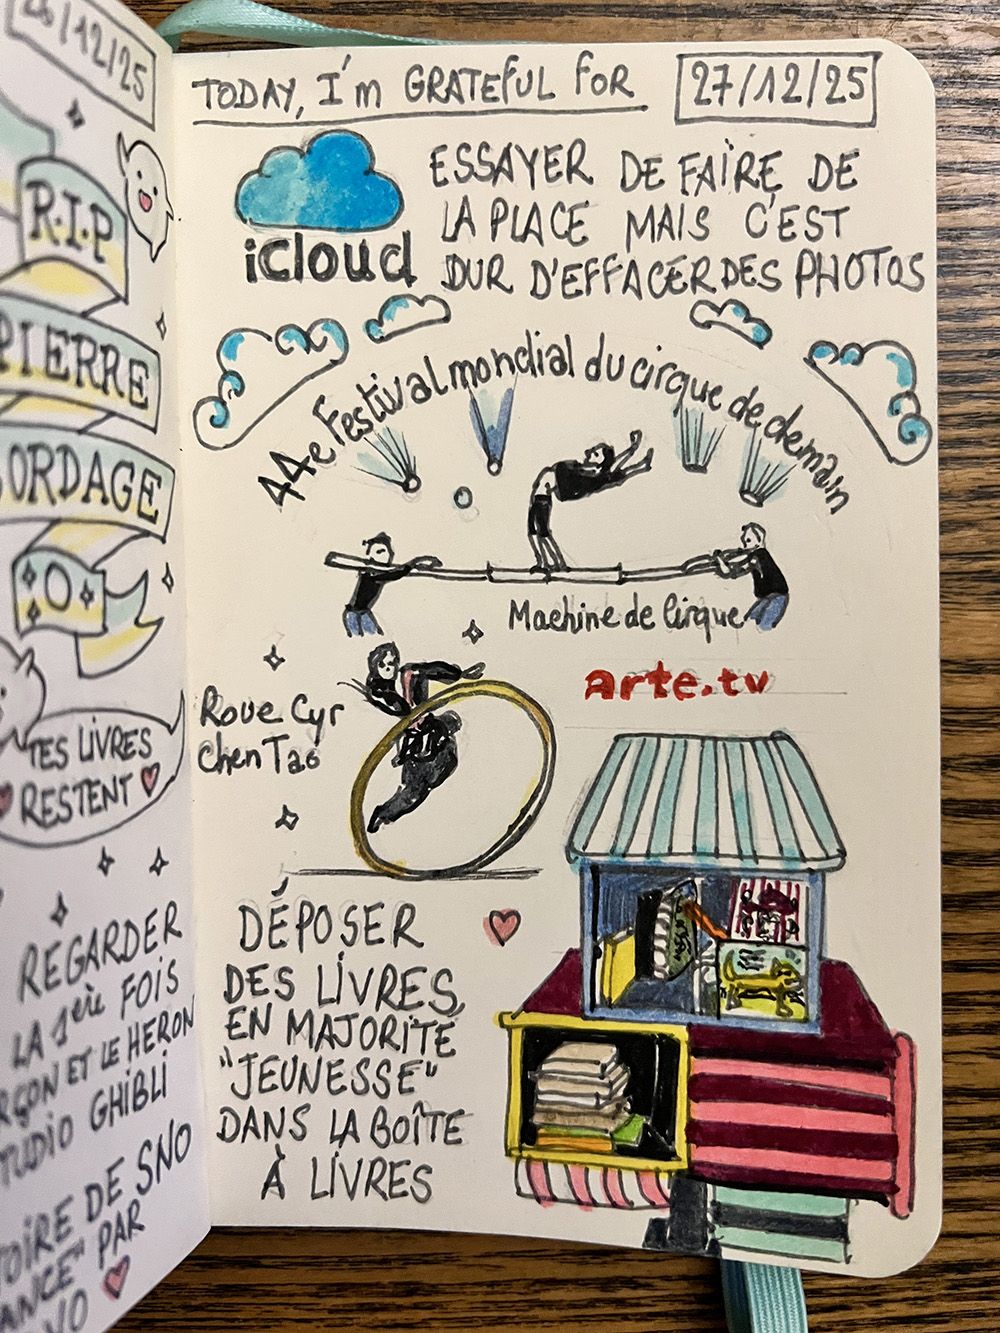 26/12/25
R.I.P
PIERRE
BORDAGE
TES LIVRES
RESTENT
REGARDER
LA 1ère FOIS
GARÇON ET LE HERON
STUDIO GHIBLI
DE SNO
PAR
TODAY, I'm GRATEFUL FOR
27/12/25
iCloud
ESSAYER DE FAIRE DE
LA PLACE MAIS C'EST
DUR D'EFFACER DES PHOTOS
44e Festival mondial du cirque de demain
Machine de Cirque
Roue Cyr
Chen Tao
arte.tv
DÉPOSER
DES LIVRES,
EN MAJORITÉ
"JEUNESSE"
DANS LA BOÎTE
À LIVRES